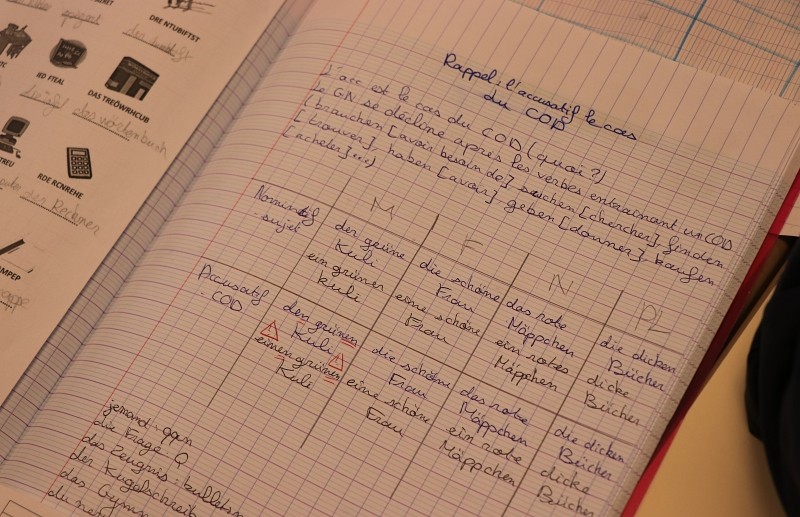 DRE NTUBIFTST
JED FTEAL
DAS TREÖWRHCUB
das wörterbuch
TREU
RDE RCNREHE
der Rechner
MPEP
Rappel : l'accusatif le cas
du COD
L'acc est le cas du COD (quoi ?)
Le GN se décline après les verbes entraînant un COD
(brauchen [avoir besoin de], suchen [chercher], finden
[trouver], haben [avoir], geben [donner], kaufen
[acheter]...)
M
F
N
PL
Nominatif
- sujet
der grüne
Kuli
ein grüner
Kuli
die schöne
Frau
eine schöne
Frau
das rote
Mäppchen
ein rotes
Mäppchen
die dicken
Bücher
dicke
Bücher
Accusatif
- COD
den grünen
Kuli
einen grünen
Kuli
die schöne
Frau
eine schöne
Frau
das rote
Mäppchen
ein rote
Mäppchen
die dicken
Bücher
dicke
Bücher
jemand : qqn
die Frage : Q
das Zeugnis : bulletin
der Kugelschreib
das Gymn